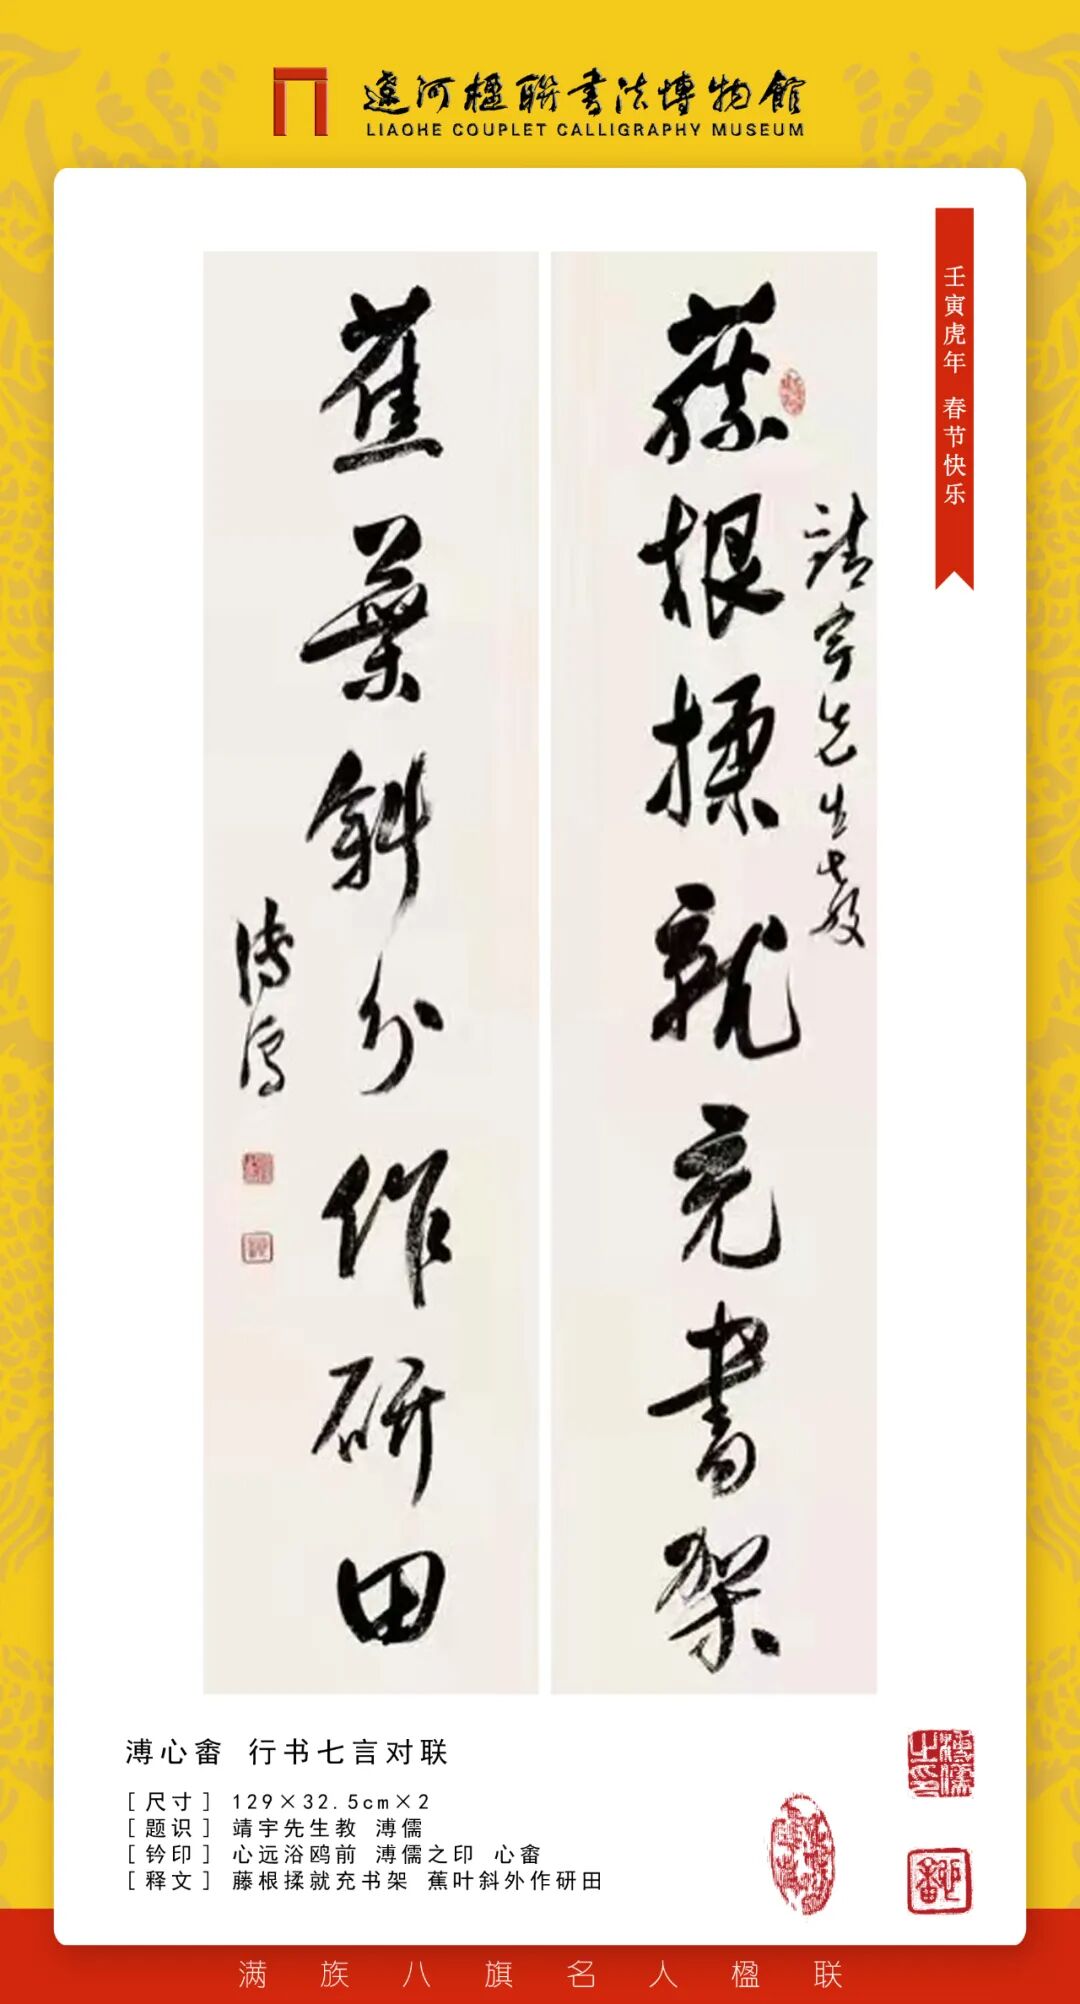 遼河楹聯書法博物館
LIAOHE COUPLET CALLIGRAPHY MUSEUM
壬寅虎年 春节快乐
藤根揉就充書架
靖宇先生教
蕉葉斜分作研田
溥儒
溥心畬 行书七言对联
[尺寸] 129×32.5cm×2
[题识] 靖宇先生教 溥儒
[钤印] 心远浴鸥前 溥儒之印 心畬
[释文] 藤根揉就充书架 蕉叶斜外作研田
溥儒之印
心畬
满族八旗名人楹联